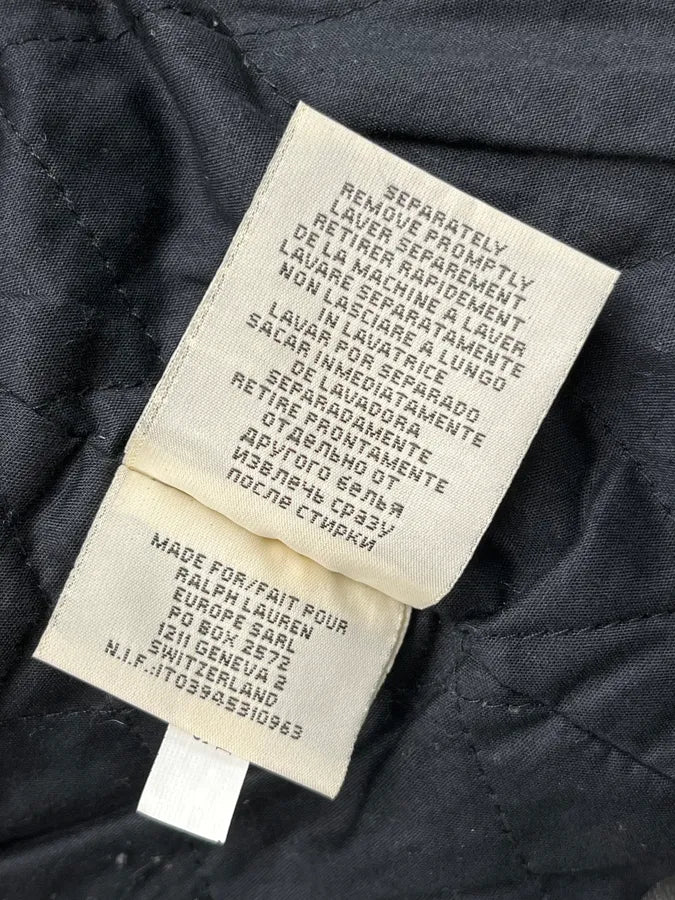 SEPARATELY
REMOVE PROMPTLY
LAVER SEPAREMENT
RETIRER RAPIDEMENT
DE LA MACHINE A LAVER
LAVARE SEPARATAMENTE
NON LASCIARE A LUNGO
IN LAVATRICE
LAVAR POR SEPARADO
SACAR INMEDIATAMENTE
DE LAVADORA
SEPARADAMENTE
RETIRE PRONTAMENTE
ОТДЕЛЬНО ОТ
другого белья
Извлечь сразу
после стирки
MADE FOR/FAIT POUR
RALPH LAUREN
EUROPE SARL
PO BOX 2572
1211 GENEVA 2
SWITZERLAND
N.I.F.:IT039A5310963